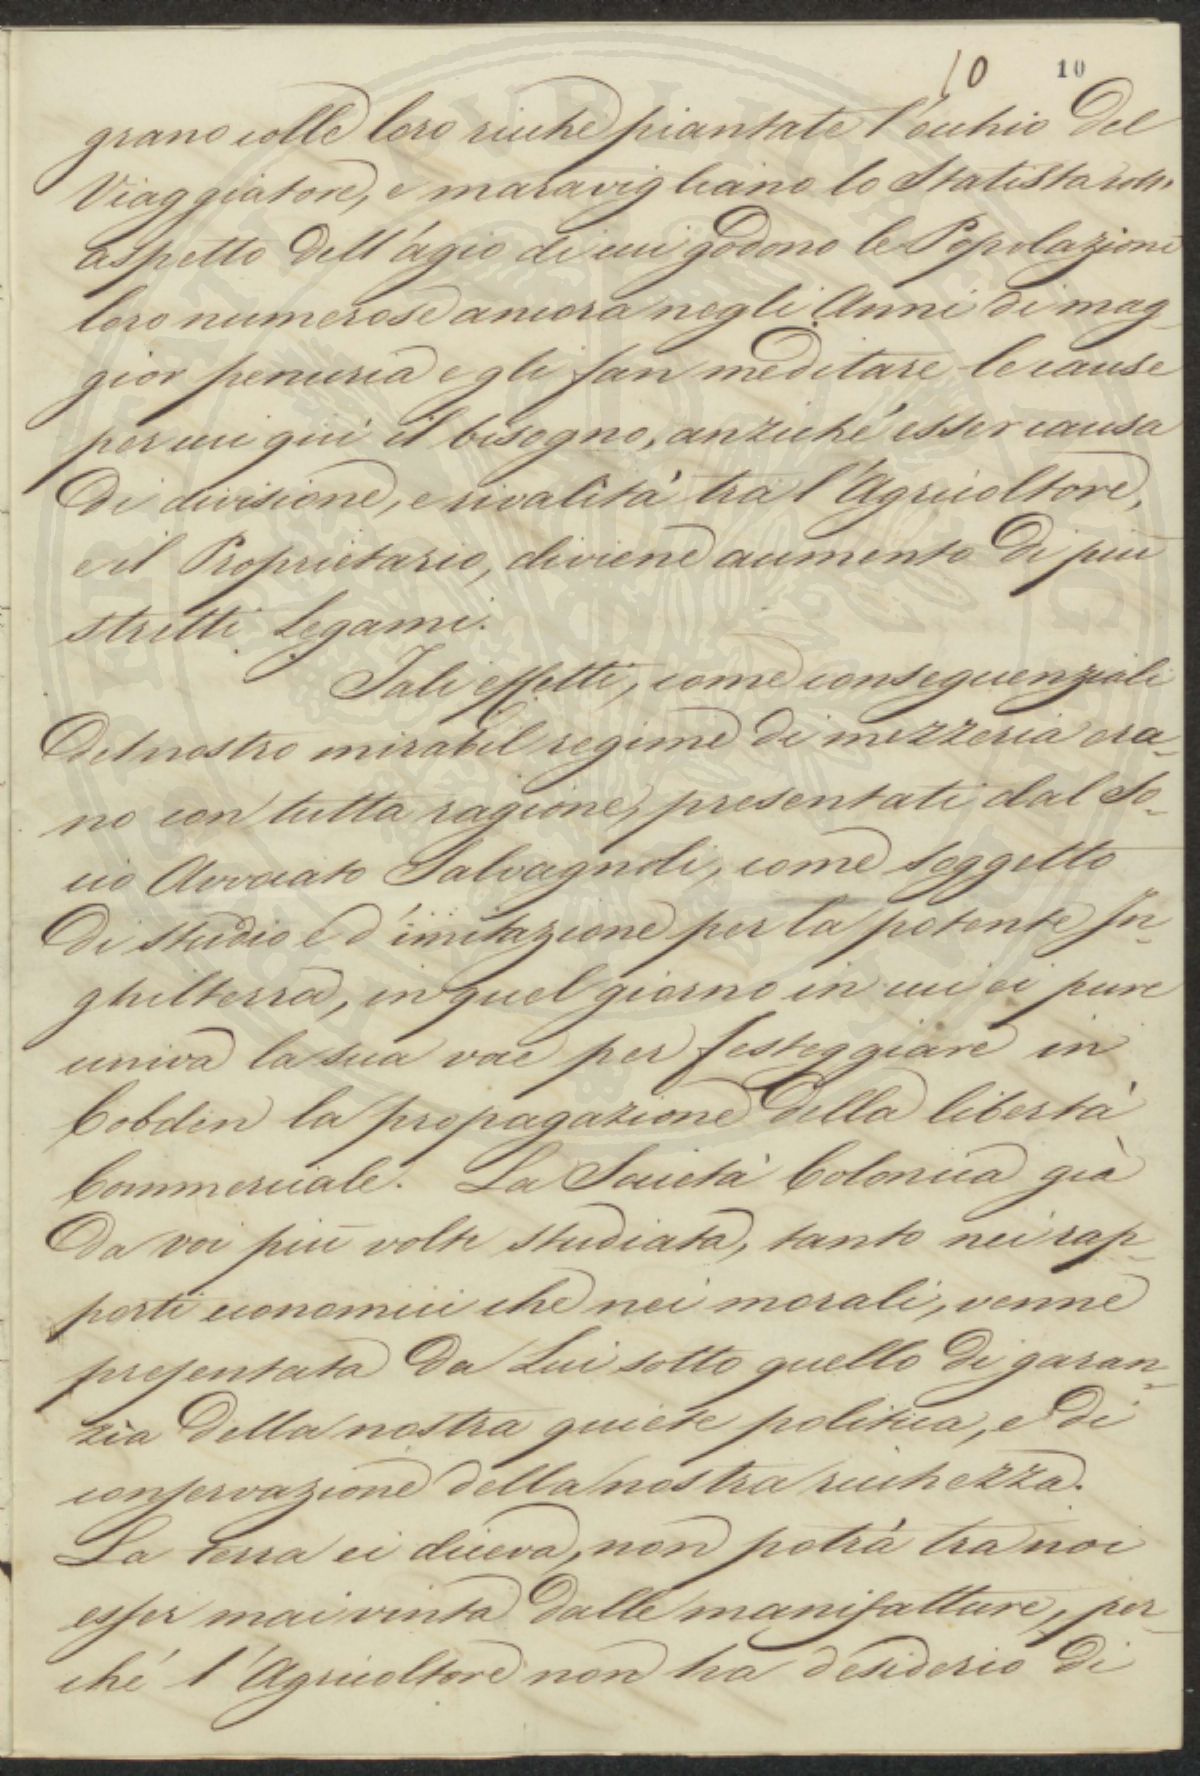 10 10
grano colle loro ricche piantate l'occhio del
Viaggiatore, e maravigliano lo Statista coll'
aspetto dell'agio di cui godono le Popolazioni
loro numerose ancora negli Anni di mag-
gior penuria e gli fan meditare le cause
per cui qui il bisogno, anziché esser causa
di divisione, e rivalità tra l'Agricoltore,
e il Proprietario, diviene aumento di più
stretti Legami.
Tali effetti, come conseguenziali
del nostro mirabil regime di mezzeria era-
no con tutta ragione, presentati dal So-
cio Avvocato Salvagnoli, come soggetto
di studio e d'imitazione per la potente In-
ghilterra, in quel giorno in cui ei pure
univa la sua voce per festeggiare in
Cobden la propagazione della libertà
Commerciale. La Società Colonica già
da voi più volte studiata, tanto nei rap-
porti economici che nei morali, venne
presentata da Lui sotto quello di garan-
zia della nostra quiete politica, e di
conservazione della nostra ricchezza.
La terra ei diceva, non potrà tra noi
esser mai vinta dalle manifatture, per-
ché l'Agricoltore non ha desiderio di